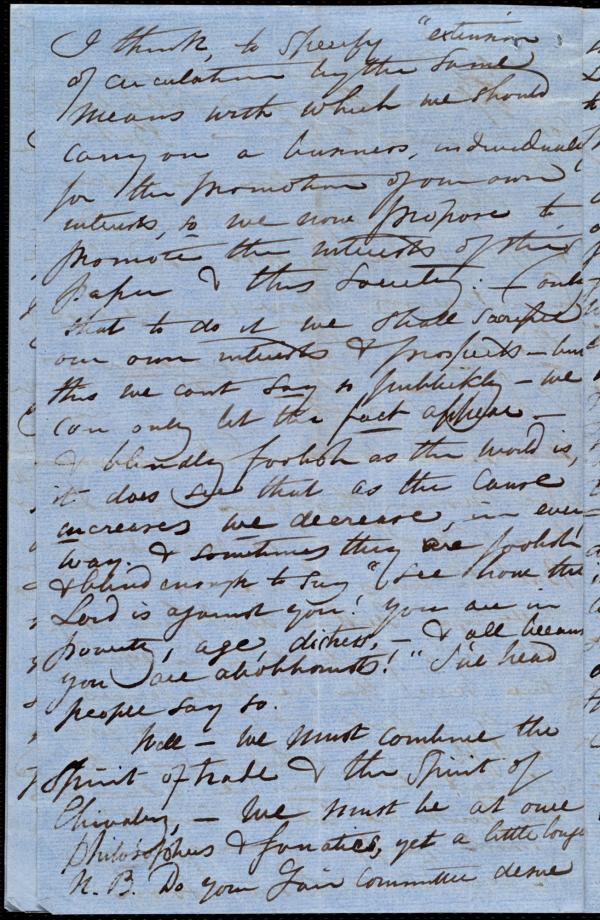 I think, to specify "extension
of circulation by the same
means with which we should
carry on a business, individually
for the promotion of our own
interests, so we now propose to
promote the interests of this
paper & this Society: — (only
that to do it we shall sacrifice
our own interests & prospects — but
this we can't say so publickly — we
can only let the fact appear —
& blindly foolish as the world is,
it does see that as the Cause
increases we decrease, in every
way. & sometimes they are foolish
& blind enough to say "see how the
Lord is against you! you are in
poverty, age, distress, — & all because
you are abolitionists!" I've heard
people say so.
Well — we must combine the
Spirit of trade & the Spirit of
Chivalry, — We must be at once
philosophers & fanatics, yet a little longer
N. B. Do your Fair Committee desire